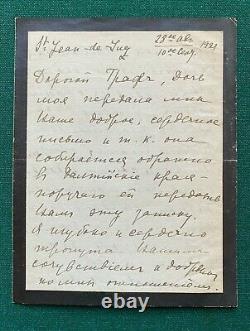 St Jean de Luz
28го Авг. / 10го Сент. 1921
Дорогой Графъ, Дочь
моя передала мнѣ
Ваше доброе, сердечное
письмо и т. к. она
собирается обратно
въ Балтійскіе края –
поручаю ей передать
Вамъ эту записку.
Я глубоко и сердечно
тронута Вашимъ
сочувствіемъ и добрымъ
ко мнѣ отношеніемъ.